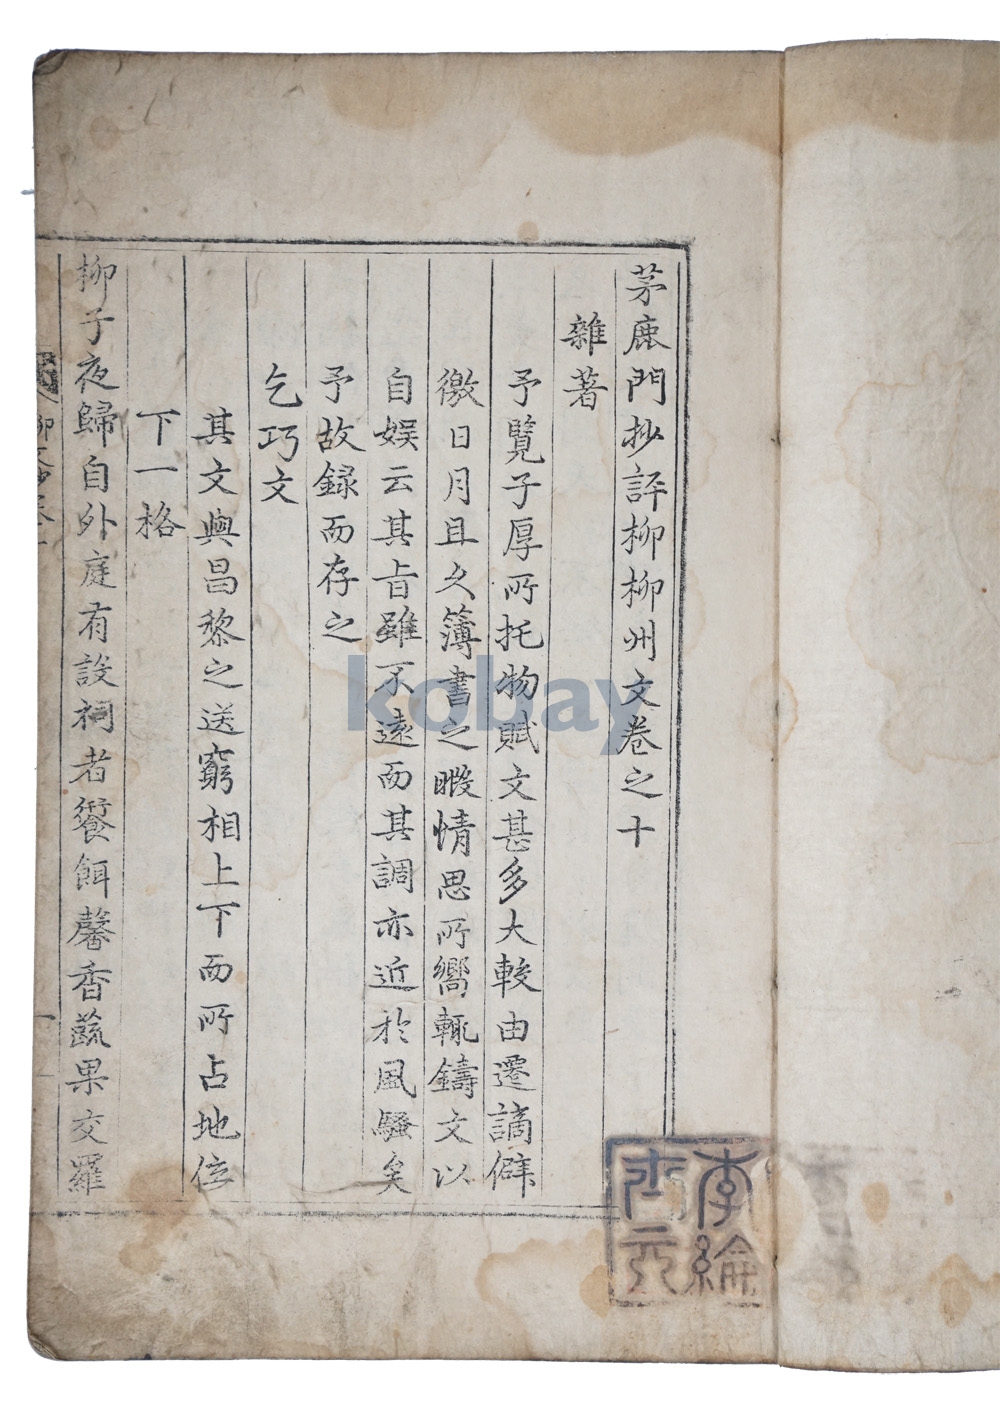 茅鹿門抄評柳柳州文卷之十
雜著
予覽子厚所托物賦文甚多大較由遷謫僻
徼日月且久簿書之暇情思所嚮輒鑄文以
自娛云其旨雖不遠而其調亦近於風騷矣
予故録而存之
乞巧文
其文與昌黎之送窮相上下而所占地位
下一格
柳子夜歸自外庭有設祠者餈餌馨香蔬果交羅
kobay
李綸